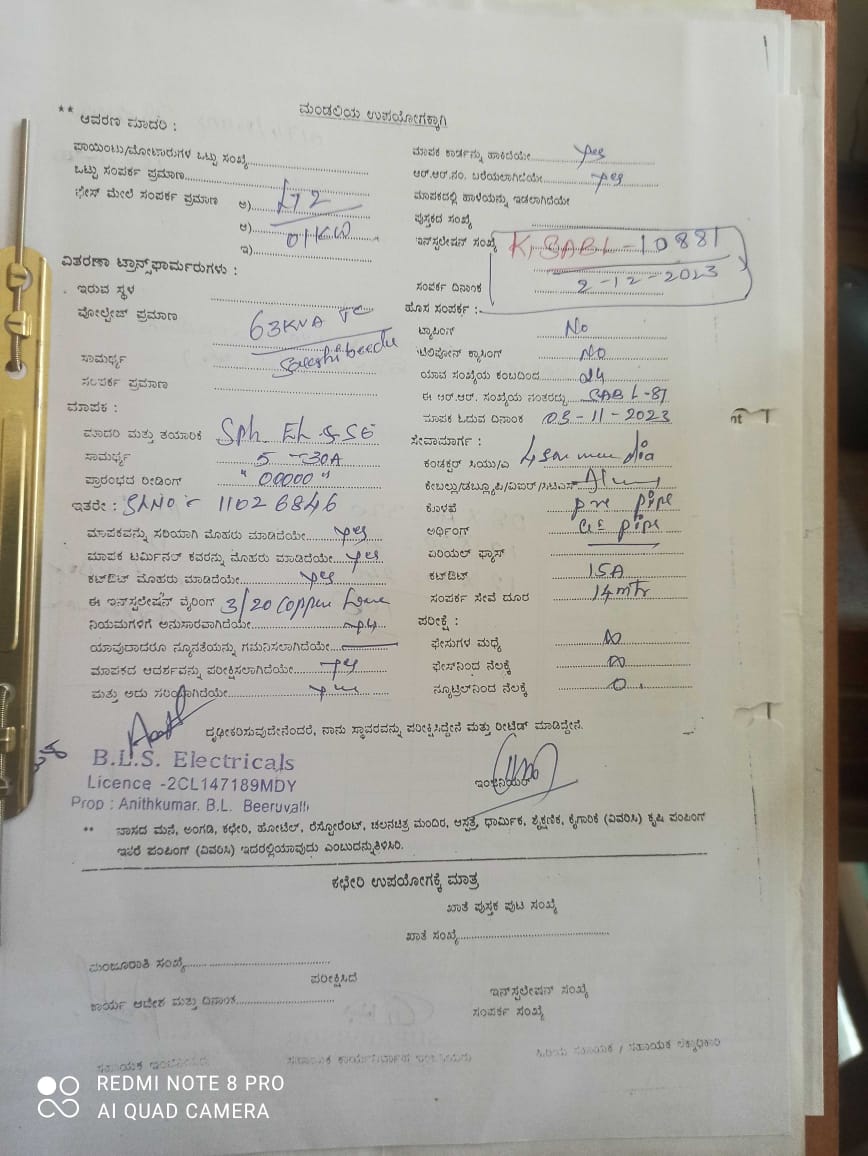 ಮಂಡಲಿಯ ಉಪಯೋಗಕ್ಕಾಗಿ
** ಆವರಣ ಮಾದರಿ :
ಪಾಯಿಂಟು/ಮೋಟಾರುಗಳ ಒಟ್ಟು ಸಂಖ್ಯೆ
ಒಟ್ಟು ಸಂಪರ್ಕ ಪ್ರಮಾಣ
ಫೇಸ್ ಮೇಲೆ ಸಂಪರ್ಕ ಪ್ರಮಾಣ ಅ)
ಆ) 01KW
ಇ)
ವಿತರಣಾ ಟ್ರಾನ್ಸ್‌ಫಾರ್ಮರುಗಳು :
ಇರುವ ಸ್ಥಳ
ವೋಲ್ಟೇಜ್ ಪ್ರಮಾಣ 63KVA TC
ಸಾಮರ್ಥ್ಯ
ಸಂಪರ್ಕ ಪ್ರಮಾಣ
ಮಾಪಕ :
ಮಾದರಿ ಮತ್ತು ತಯಾರಿಕೆ
ಸಾಮರ್ಥ್ಯ 5-30A
ಪ್ರಾರಂಭದ ರೀಡಿಂಗ್ "00000"
ಇತರೇ : SLNO 11026846
ಮಾಪಕವನ್ನು ಸರಿಯಾಗಿ ಮೊಹರು ಮಾಡಿದೆಯೇ yes
ಮಾಪಕ ಟರ್ಮಿನಲ್ ಕವರನ್ನು ಮೊಹರು ಮಾಡಿದೆಯೇ yes
ಕಟ್‌ಔಟ್ ಮೊಹರು ಮಾಡಿದೆಯೇ yes
ಈ ಇನ್‌ಸ್ಟಲೇಷನ್ ವೈರಿಂಗ್ 3/20 Copper
ನಿಯಮಗಳಿಗೆ ಅನುಸಾರವಾಗಿದೆಯೇ yes
ಯಾವುದಾದರೂ ನ್ಯೂನತೆಯನ್ನು ಗಮನಿಸಲಾಗಿದೆಯೇ
ಮಾಪಕದ ಆದರ್ಶವನ್ನು ಪರೀಕ್ಷಿಸಲಾಗಿದೆಯೇ yes
ಮತ್ತು ಅದು ಸರಿಯಾಗಿದೆಯೇ yes
ಮಾಪಕ ಕಾರ್ಡನ್ನು ಹಾಕಿದೆಯೇ yes
ಆರ್.ಆರ್.ನಂ. ಬರೆಯಲಾಗಿದೆಯೇ yes
ಮಾಪಕದಲ್ಲಿ ಹಾಳೆಯನ್ನು ಇಡಲಾಗಿದೆಯೇ
ಪುಸ್ತಕದ ಸಂಖ್ಯೆ
ಇನ್‌ಸ್ಟಲೇಷನ್ ಸಂಖ್ಯೆ KBABL-10881
ಸಂಪರ್ಕ ದಿನಾಂಕ 2-12-2023
ಹೊಸ ಸಂಪರ್ಕ :-
ಟ್ಯಾಪಿಂಗ್ No
ಟೆಲಿಫೋನ್ ಕ್ರಾಸಿಂಗ್ No
ಯಾವ ಸಂಖ್ಯೆಯ ಕಂಬದಿಂದ 24
ಈ ಆರ್.ಆರ್. ಸಂಖ್ಯೆಯ ನಂತರದ್ದು BABL-87
ಮಾಪಕ ಓದುವ ದಿನಾಂಕ 03-11-2023
ಸೇವಾಮಾರ್ಗ :
ಕಂಡಕ್ಟರ್ ಸಿಯು/ಎ dia
ಕೇಬಲ್ಲು/ಡಬ್ಲ್ಯೂಪಿ/ವಿಐಆರ್/ಸಿಟಿಎಸ್
ಕೊಳವೆ pvc pipe
ಅರ್ಥಿಂಗ್ GI pipe
ಏರಿಯಲ್ ಫ್ಯೂಸ್
ಕಟ್‌ಔಟ್ 15A
ಸಂಪರ್ಕ ಸೇವೆ ದೂರ 14mtr
ಪರೀಕ್ಷೆ :
ಫೇಸುಗಳ ಮಧ್ಯೆ ∞
ಫೇಸ್‌ನಿಂದ ನೆಲಕ್ಕೆ ∞
ನ್ಯೂಟ್ರಲ್‌ನಿಂದ ನೆಲಕ್ಕೆ 0
ದೃಢೀಕರಿಸುವುದೇನೆಂದರೆ, ನಾನು ಸ್ಥಾವರವನ್ನು ಪರೀಕ್ಷಿಸಿದ್ದೇನೆ ಮತ್ತು ರೀಟೆಡ್ ಮಾಡಿದ್ದೇನೆ.
B.L.S. Electricals
Licence -2CL147189MDY
Prop : Anithkumar. B.L. Beeruvalli
ಇಂಜಿನಿಯರ್
** ವಾಸದ ಮನೆ, ಅಂಗಡಿ, ಕಛೇರಿ, ಹೋಟೆಲ್, ರೆಸ್ಟೋರೆಂಟ್, ಚಲನಚಿತ್ರ ಮಂದಿರ, ಆಸ್ಪತ್ರೆ, ಧಾರ್ಮಿಕ, ಶೈಕ್ಷಣಿಕ, ಕೈಗಾರಿಕೆ (ವಿವರಿಸಿ) ಕೃಷಿ ಪಂಪಿಂಗ್
ಇತರೆ ಪಂಪಿಂಗ್ (ವಿವರಿಸಿ) ಇದರಲ್ಲಿಯಾವುದು ಎಂಬುದನ್ನುತಿಳಿಸಿರಿ.
ಕಛೇರಿ ಉಪಯೋಗಕ್ಕೆ ಮಾತ್ರ
ಖಾತೆ ಪುಸ್ತಕ ಪುಟ ಸಂಖ್ಯೆ
ಖಾತೆ ಸಂಖ್ಯೆ
ಮಂಜೂರಾತಿ ಸಂಖ್ಯೆ
ಪರೀಕ್ಷಿಸಿದೆ
ಕಾರ್ಯ ಆದೇಶ ಮತ್ತು ದಿನಾಂಕ
ಇನ್‌ಸ್ಟಲೇಷನ್ ಸಂಖ್ಯೆ
ಸಂಪರ್ಕ ಸಂಖ್ಯೆ
ಸಹಾಯಕ ಇಂಜಿನಿಯರು
ಸಹಾಯಕ ಕಾರ್ಯನಿರ್ವಾಹಕ ಇಂಜಿನಿಯರು
ಹಿರಿಯ ಸಹಾಯಕ / ಸಹಾಯಕ ಲೆಕ್ಕಾಧಿಕಾರಿ
REDMI NOTE 8 PRO
AI QUAD CAMERA